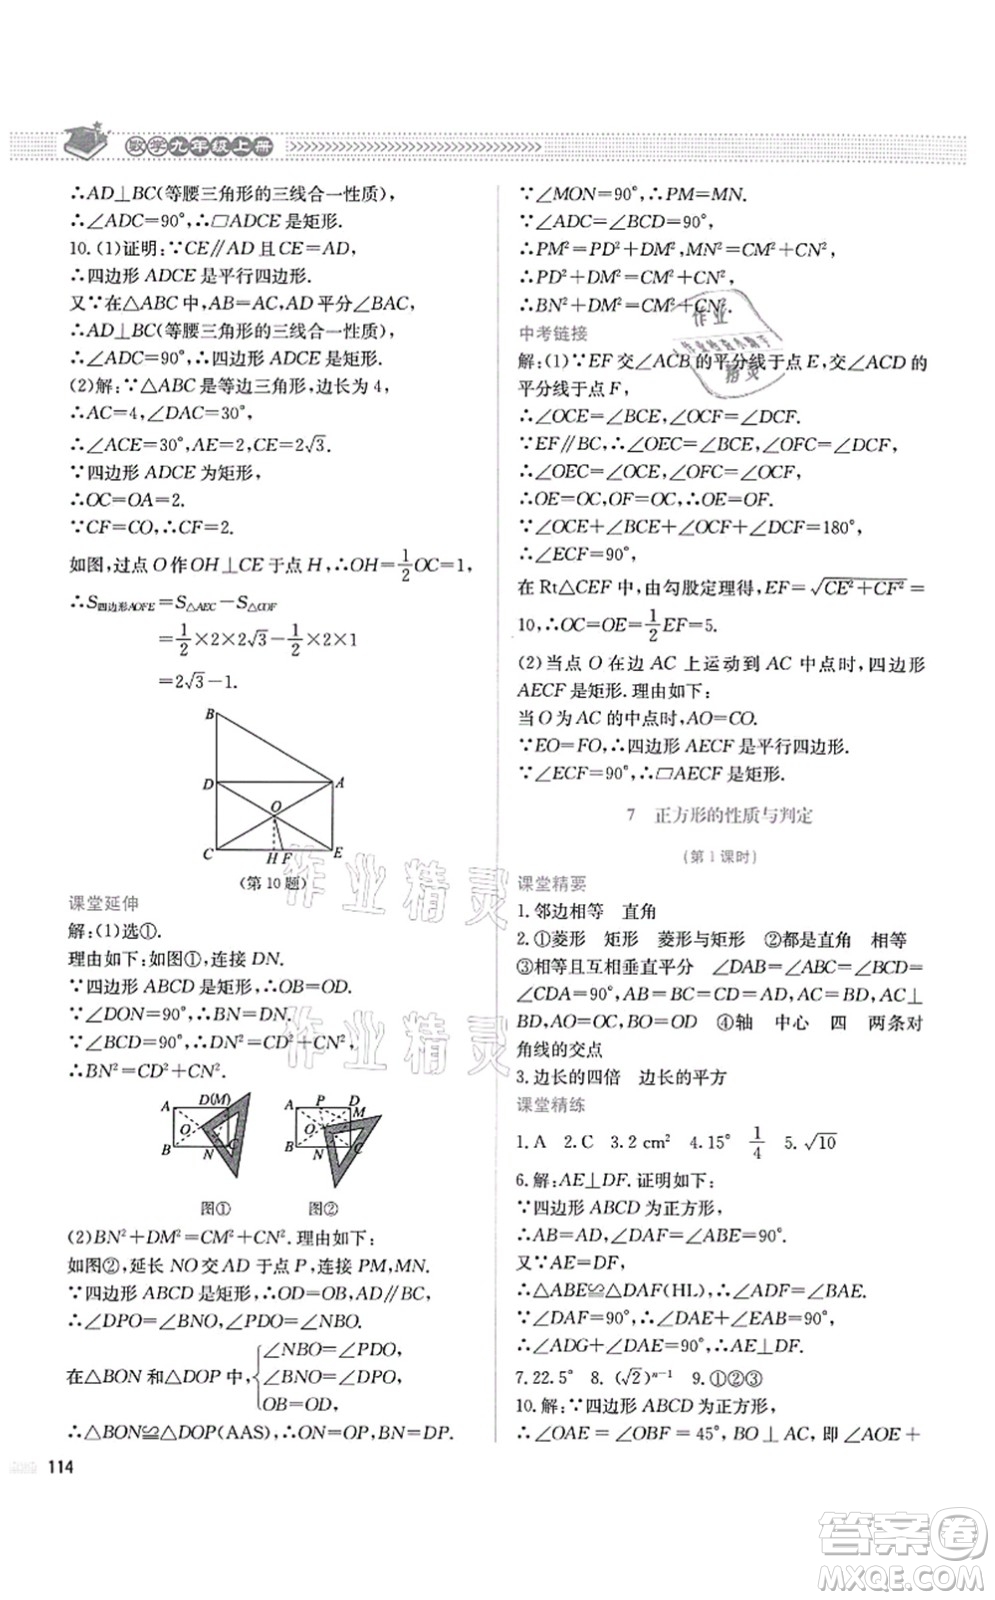 数学九年级上册
∴AD⊥BC(等腰三角形的三线合一性质),
∴∠ADC=90°,∴□ADCE是矩形.
10.(1)证明:∵CE∥AD且CE=AD,
∴四边形ADCE是平行四边形.
又∵在△ABC中,AB=AC,AD平分∠BAC,
∴AD⊥BC(等腰三角形的三线合一性质),
∴∠ADC=90°,∴四边形ADCE是矩形.
(2)解:∵△ABC是等边三角形,边长为4,
∴AC=4,∠DAC=30°,
∴∠ACE=30°,AE=2,CE=2√3.
∵四边形ADCE为矩形,
∴OC=OA=2.
∵CF=CO,∴CF=2.
如图,过点O作OH⊥CE于点H,∴OH=1/2OC=1,
∴S四边形AOFE=S△AEC−S△COF
=1/2×2×2√3−1/2×2×1
=2√3−1.
B
D A
O
C H F E
(第10题)
课堂延伸
解:(1)选①.
理由如下:如图①,连接DN.
∵四边形ABCD是矩形,∴OB=OD.
∵∠DON=90°,∴BN=DN.
∵∠BCD=90°,∴DN²=CD²+CN²,
∴BN²=CD²+CN².
A D(M) O B N C
A P D M O B N C
图① 图②
(2)BN²+DM²=CM²+CN².理由如下:
如图②,延长NO交AD于点P,连接PM,MN.
∵四边形ABCD是矩形,∴OD=OB,AD∥BC,
∴∠DPO=∠BNO,∠PDO=∠NBO.
在△BON和△DOP中,{∠NBO=∠PDO,
∠BNO=∠DPO,
OB=OD,
∴△BON≌△DOP(AAS),∴ON=OP,BN=PD.
114
∵∠MON=90°,∴PM=MN.
∵∠ADC=∠BCD=90°,
∴PM²=PD²+DM²,MN²=CM²+CN²,
∴PD²+DM²=CM²+CN²,
∴BN²+DM²=CM²+CN².
中考链接
解:(1)∵EF交∠ACB的平分线于点E,交∠ACD的
平分线于点F,
∴∠OCE=∠BCE,∠OCF=∠DCF.
∵EF∥BC,∴∠OEC=∠BCE,∠OFC=∠DCF,
∴∠OEC=∠OCE,∠OFC=∠OCF,
∴OE=OC,OF=OC,∴OE=OF.
∵∠OCE+∠BCE+∠OCF+∠DCF=180°,
∴∠ECF=90°.
在Rt△CEF中,由勾股定理得,EF=√(CE²+CF²)=
10,∴OC=OE=1/2EF=5.
(2)当点O在边AC上运动到AC中点时,四边形
AECF是矩形.理由如下:
当O为AC的中点时,AO=CO.
∵EO=FO,∴四边形AECF是平行四边形.
∵∠ECF=90°,∴□AECF是矩形.
7 正方形的性质与判定
(第1课时)
课堂精要
1.邻边相等 直角
2.①菱形 矩形 菱形与矩形 ②都是直角 相等
③相等且互相垂直平分 ∠DAB=∠ABC=∠BCD
=∠CDA=90°,AB=BC=CD=DA,AC=BD,AC⊥
BD,AO=OC,BO=OD ④轴 中心 四 两条对
角线的交点
3.边长的四倍 边长的平方
课堂精练
1.A 2.C 3.2 cm² 4.15° 1/4 5.√10
6.解:AE⊥DF.证明如下:
∵四边形ABCD为正方形,
∴AB=AD,∠DAF=∠ABE=90°.
又∵AE=DF,
∴△ABE≌△DAF(HL),∴∠ADF=∠BAE.
∵∠BAE+∠DAG=∠EAB=90°,
∴∠ADG+∠DAE=90°,∴AE⊥DF.
7.22.5° 8.(√2)ⁿ⁻¹ 9.①②③
10.解:∵四边形ABCD为正方形,
∴∠OAE=∠OBF=45°,BO⊥AC,即∠AOE+
作业精灵
作业精灵
作业
精灵
答案卷
MXQE.COM